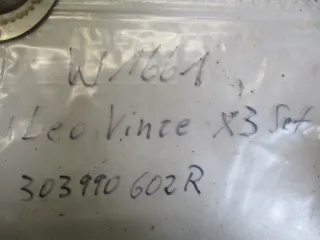 W1661
Leo Vince X3 Set
303990602R